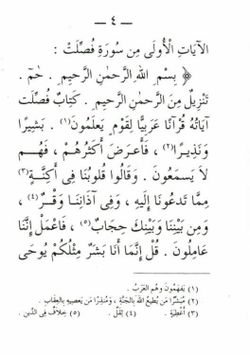 — ٤ —
الآيَاتِ الْأُولَى مِن سُورَةِ فُصِّلَتْ :
﴿ بِسْمِ اللهِ الرَّحْمٰنِ الرَّحِيْمِ . حٰمٓ .
تَنْزِيلٌ مِنَ الرَّحْمٰنِ الرَّحِيمِ . كِتَابٌ فُصِّلَت
آيَاتُهُ قُرآنًا عَرَبِيًّا لِقَوْمٍ يَعْلَمُونَ(١) . بَشِيرًا
وَنَذِيرًا(٢) ، فَأَعرَضَ أَكثَرُهُم ، فَهُم
لَا يَسمَعُونَ . وَقَالُوا قُلُوبُنَا فِى أَكِنَّةٍ(٣)
مِمَّا تَدعُونَا إِلَيهِ ، وَفِى آذَانِنَا وَقْرٌ(٤) ،
وَمِن بَيْنِنَا وَبَيْنِكَ حِجَابٌ(٥) ، فَاعْمَلْ إِنَّنَا
عَامِلُونَ . قُلْ إِنَّمَا أَنَا بَشَرٌ مِثْلُكُمْ يُوحَى
(١) يَفهَمُونَ وهُم العَرَبُ .
(٢) مُبَشِّرًا مَن يُطِيعُ اللهَ بِالجَنَّةِ ، وَمُنذِرًا مَن يَعصِيهِ بِالعِقَابِ .
(٣) أَغطِيَةٍ . (٤) ثِقَلٌ . (٥) خِلَافٌ فِى الدِّينِ .